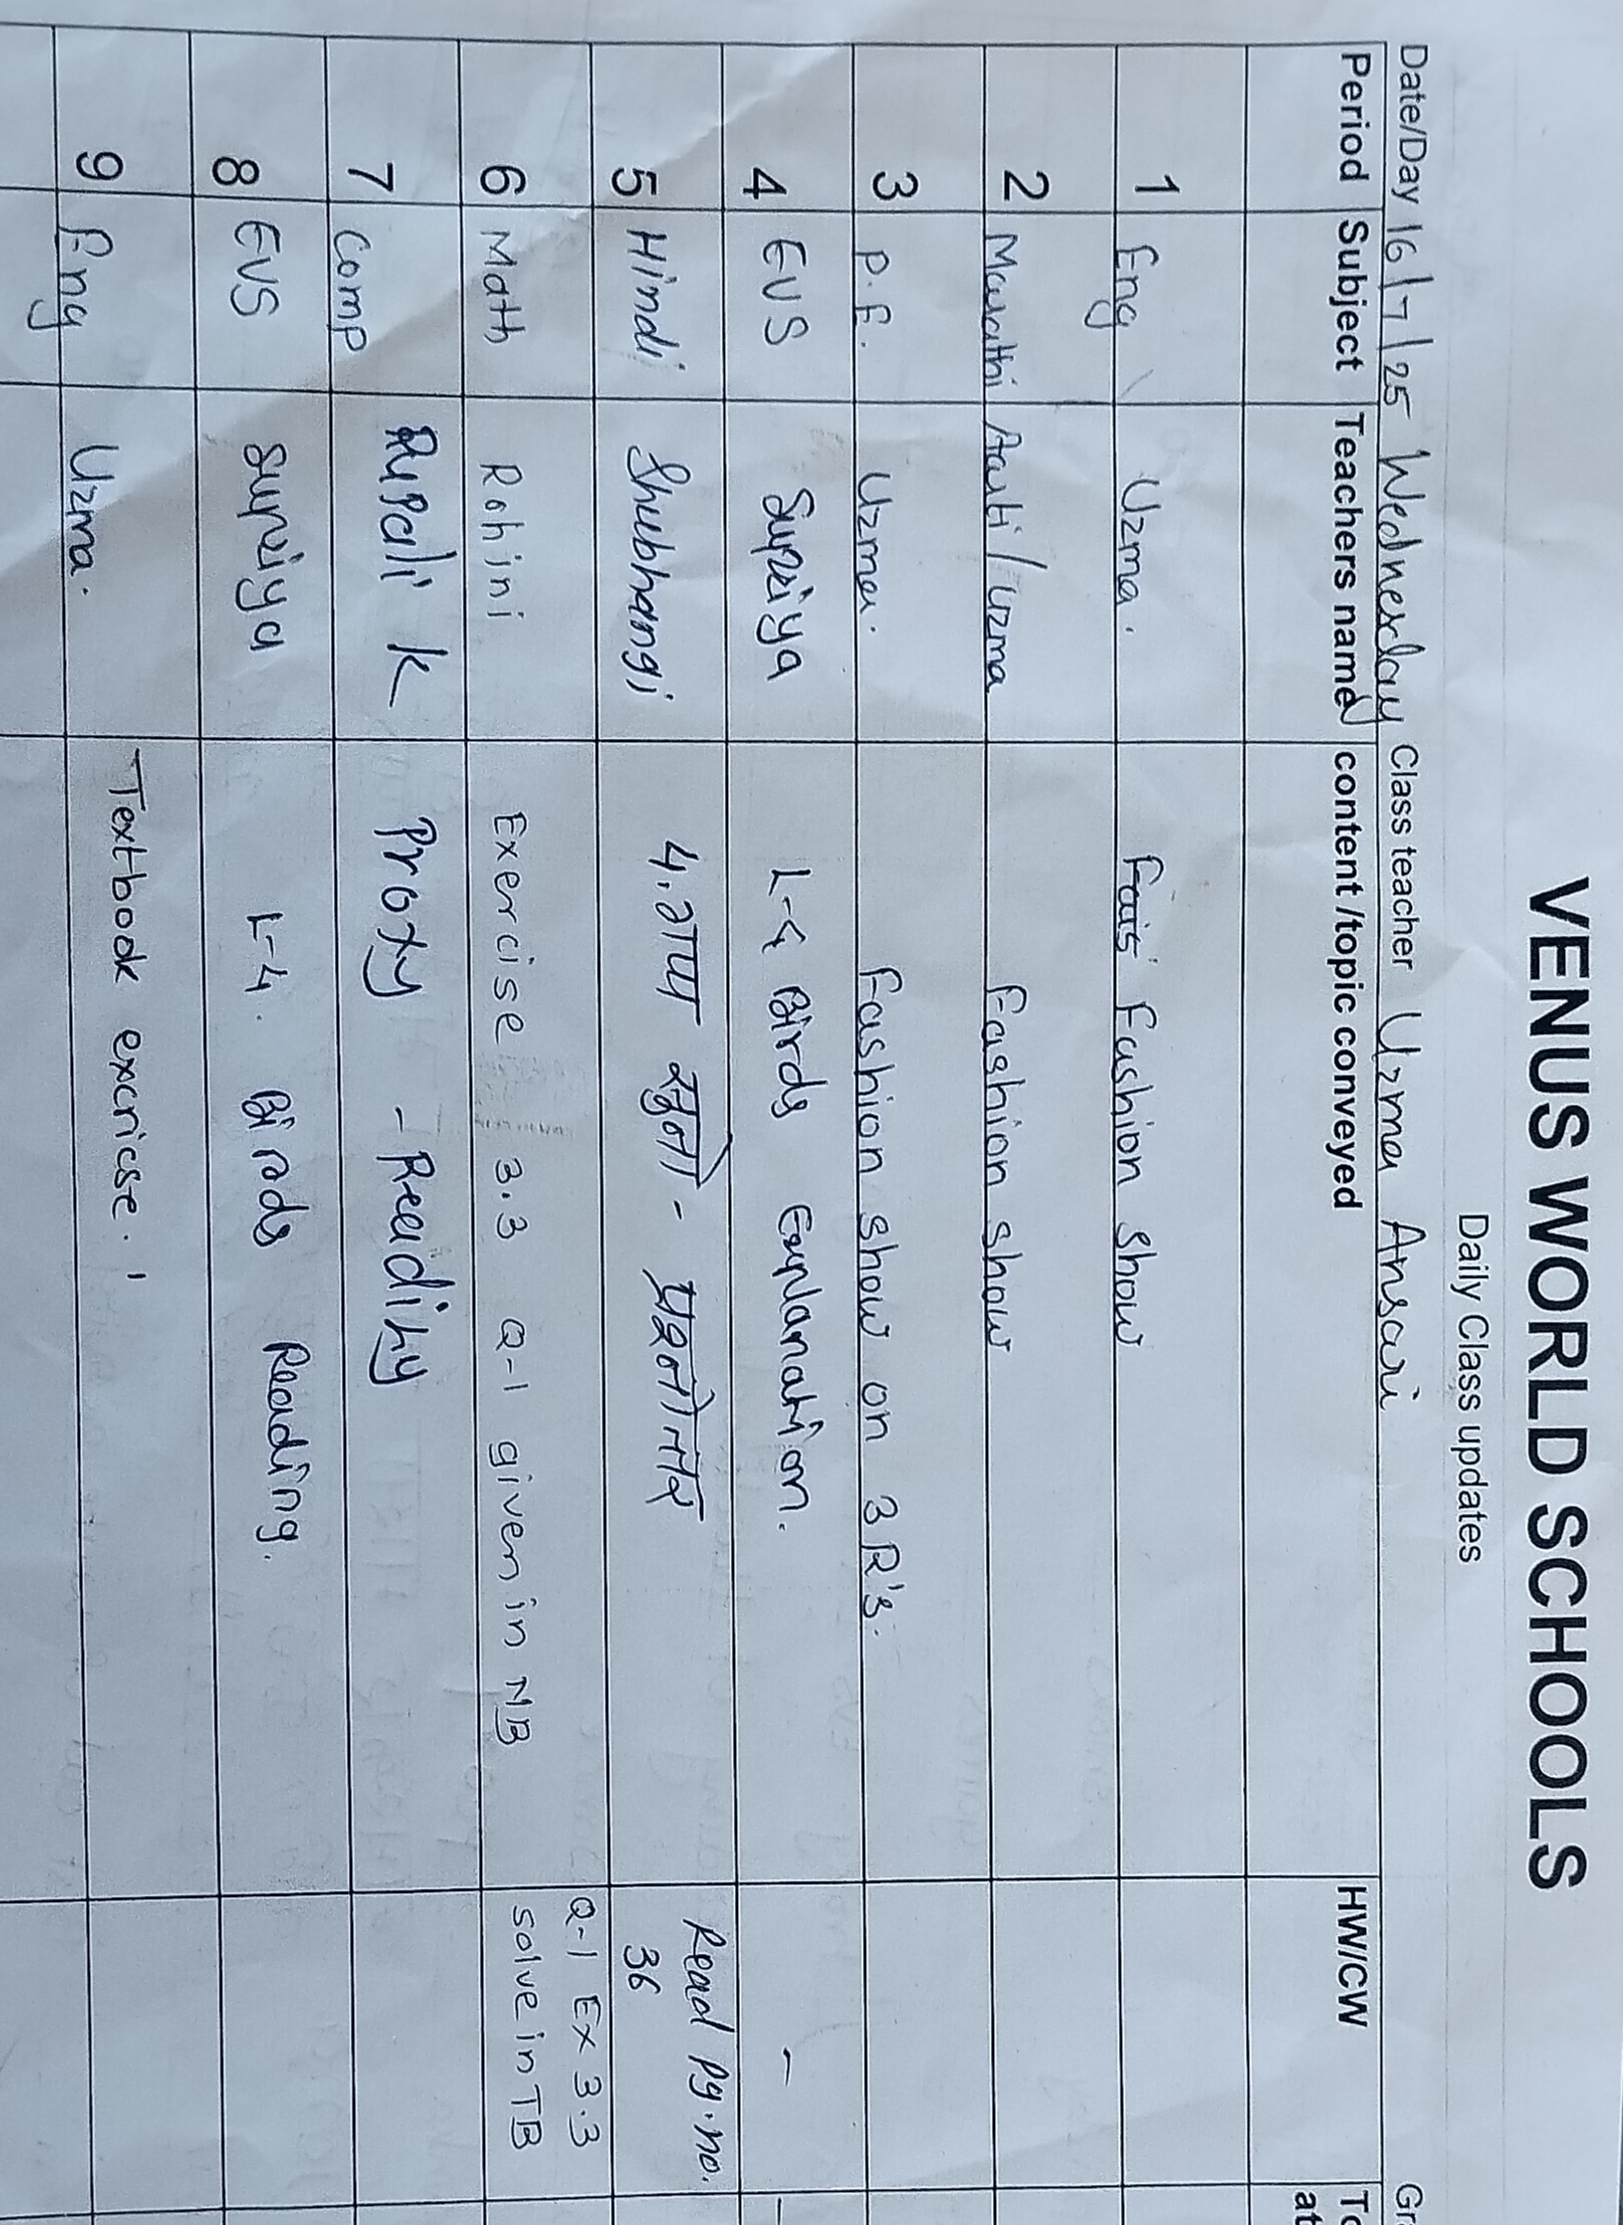 VENUS WORLD SCHOOLS
Daily Class updates
Date/Day 16/7/25 Wednesday Class teacher Uzma Ansari Gr
Period Subject Teachers name content /topic conveyed HW/CW To
at
1 Eng Uzma. Fais Fashion show
2 Marathi Aarti/Uzma Fashion show
3 P.E. Uzma. Fashion show on 3R's.
4 EVS Supriya L-4 Birds Explanation. -
5 Hindi Shubhangi 4. - प्रश्नोत्तर Read pg.no. 36
6 Math Rohini Exercise 3.3 Q-1 given in NB Q-1 EX 3.3 solve in TB
7 Comp Rupali K Proxy - Reading
8 EVS Supriya L-4. Birds Reading.
9 Eng Uzma. Textbook excrise.